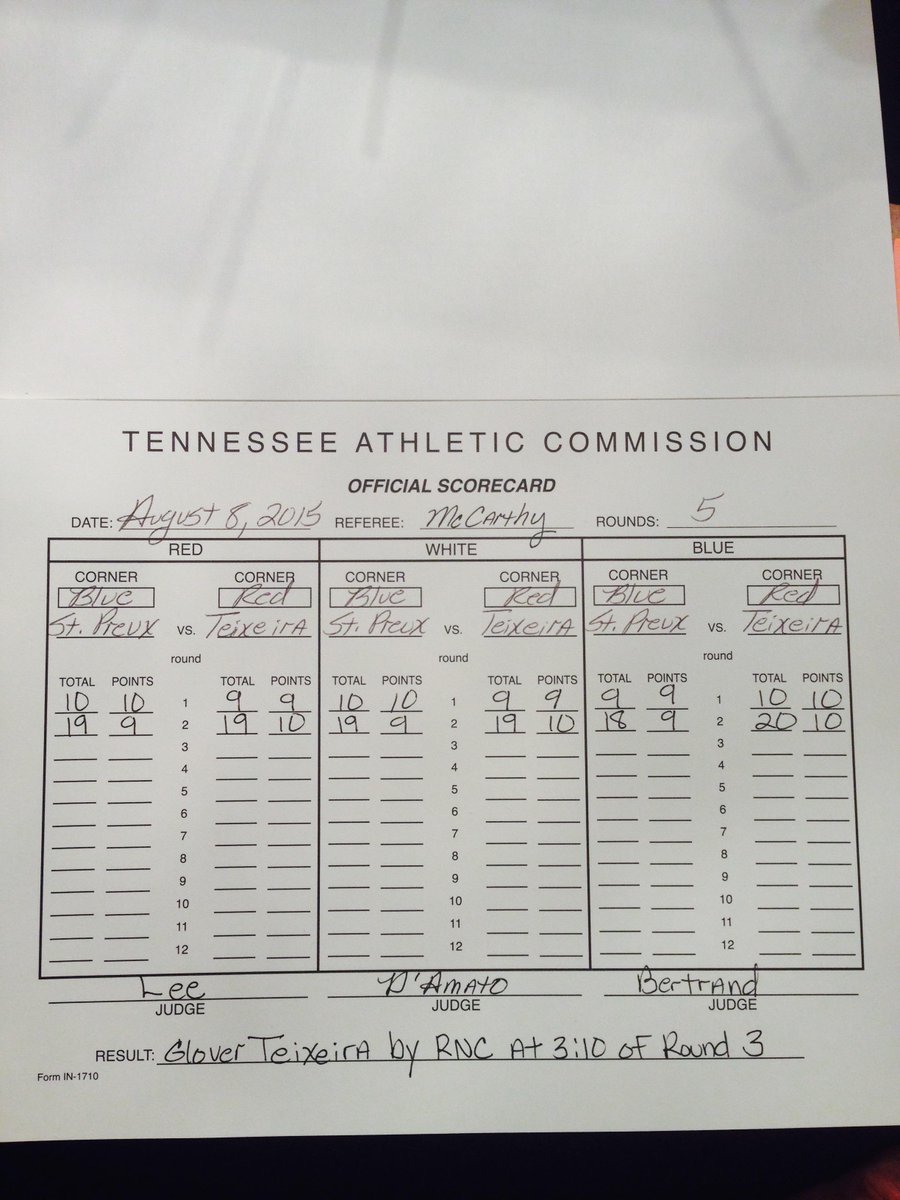 TENNESSEE ATHLETIC COMMISSION
OFFICIAL SCORECARD
DATE: August 8, 2015 REFEREE: McCarthy ROUNDS: 5
RED WHITE BLUE
CORNER CORNER CORNER CORNER CORNER CORNER
Blue Red Blue Red Blue Red
St. Preux vs. Teixeira St. Preux vs. Teixeira St. Preux vs. Teixeira
round round round
TOTAL POINTS TOTAL POINTS TOTAL POINTS TOTAL POINTS TOTAL POINTS TOTAL POINTS
10 10 1 9 9 10 10 1 9 9 9 9 1 10 10
19 9 2 19 10 19 9 2 19 10 18 9 2 20 10
3 3 3
4 4 4
5 5 5
6 6 6
7 7 7
8 8 8
9 9 9
10 10 10
11 11 11
12 12 12
Lee D'Amato Bertrand
JUDGE JUDGE JUDGE
RESULT: Glover Teixeira by RNC At 3:10 of Round 3
Form IN-1710